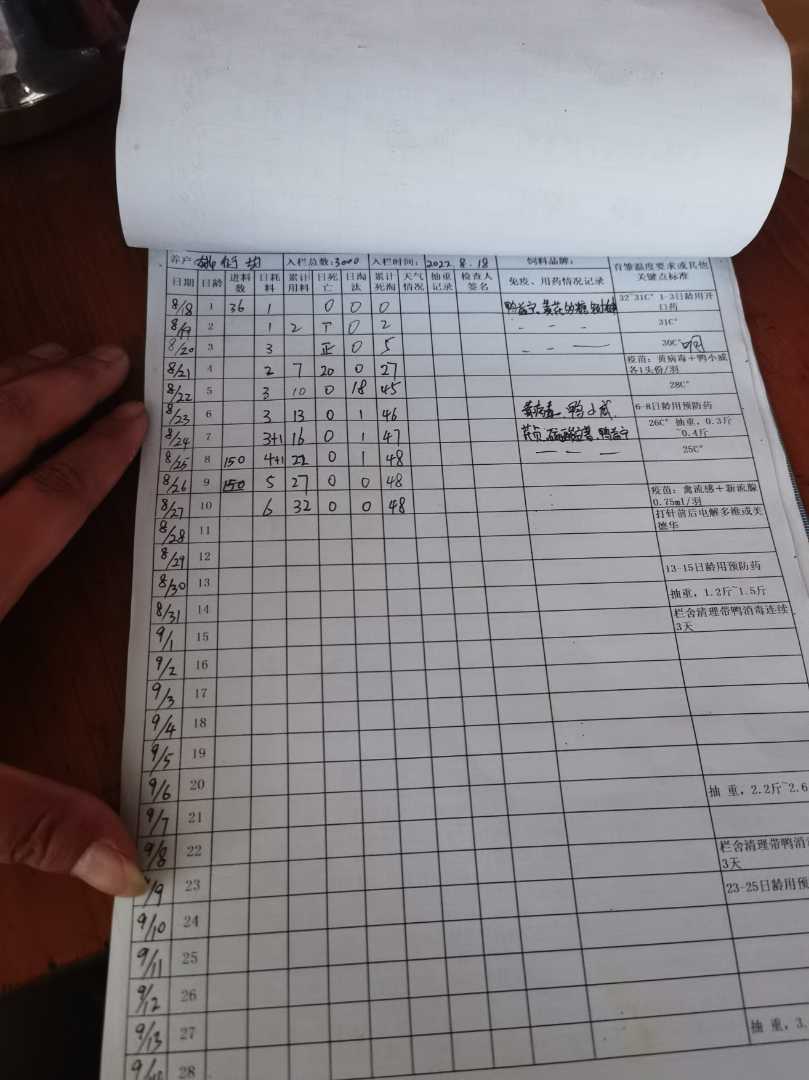 养户 入栏总数:3000 入栏时间: 2022.8.18 饲料品牌: 育雏温度要求或其他关键点标准
日期 日龄 进料数 日耗料 累计用料 日死亡 日淘汰 累计死淘 天气情况 抽重记录 检查人签名 免疫、用药情况记录
8/18 1 36 1 0 0 0 鸭益宁、黄芪多糖 32~31C° 1-3日龄用开口药
8/19 2 1 2 T 0 2 – – – 31C°
8/20 3 3 正 0 5 – – — 30C°
8/21 4 2 7 20 0 27 疫苗:黄病毒+鸭小威各1头份/羽
8/22 5 3 10 0 18 45 28C°
8/23 6 3 13 0 1 46 黄病毒、鸭小威. 6-8日龄用预防药
8/24 7 3+1 16 0 1 47 鸭益宁 26C° 抽重,0.3斤~0.4斤
8/25 8 150 4+1 22 0 1 48 — — — 25C°
8/26 9 150 5 27 0 0 48
8/27 10 6 32 0 0 48 疫苗:禽流感+新流腺0.75ml/羽
8/28 11 打针前后电解多维或美德华
8/29 12
8/30 13 13-15日龄用预防药
8/31 14 抽重,1.2斤~1.5斤
9/1 15 栏舍清理带鸭消毒连续3天
9/2 16
9/3 17
9/4 18
9/5 19
9/6 20
9/7 21 抽 重,2.2斤~2.6
9/8 22
9/9 23 栏舍清理带鸭消 3天
9/10 24 23-25日龄用预
9/11 25
9/12 26
9/13 27
28 抽 重,3.